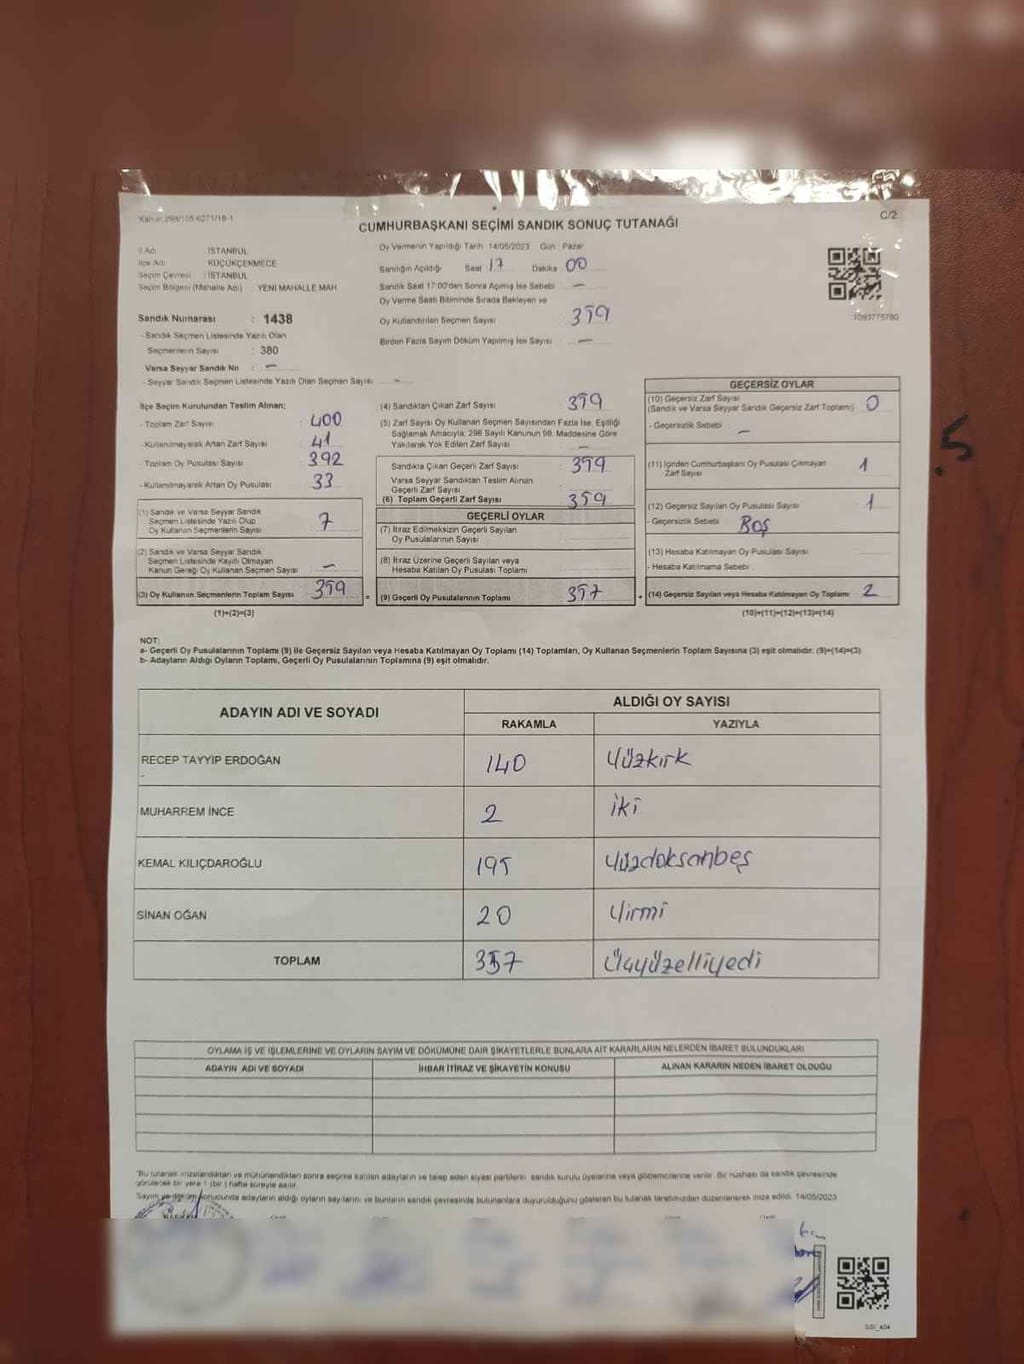 Kanun 298/105 6271/18-1
C/2
CUMHURBAŞKANI SEÇİMİ SANDIK SONUÇ TUTANAĞI
İl Adı : İSTANBUL
İlçe Adı : KÜÇÜKÇEKMECE
Seçim Çevresi : İSTANBUL
Seçim Bölgesi (Mahalle Adı) : YENİ MAHALLE MAH
Oy Vermenin Yapıldığı Tarih : 14/05/2023 Gün : Pazar
Sandığın Açıldığı Saat 17 Dakika 00
Sandık Saat 17:00'den Sonra Açımış İse Sebebi —
Oy Verme Saati Bitiminde Sırada Bekleyen ve
Oy Kullandırılan Seçmen Sayısı 359
Birden Fazla Sayım Döküm Yapılmış İse Sayısı —
1093775760
Sandık Numarası : 1438
- Sandık Seçmen Listesinde Yazılı Olan
Seçmenlerin Sayısı : 380
Varsa Seyyar Sandık No : —
- Seyyar Sandık Seçmen Listesinde Yazılı Olan Seçmen Sayısı : -
İlçe Seçim Kurulundan Teslim Alınan;
- Toplam Zarf Sayısı 400
- Kullanılmayarak Artan Zarf Sayısı 41
- Toplam Oy Pusulası Sayısı 392
- Kullanılmayarak Artan Oy Pusulası 33
(1) Sandık ve Varsa Seyyar Sandık
Seçmen Listesinde Yazılı Olup
Oy Kullanan Seçmenlerin Sayısı 7
(2) Sandık ve Varsa Seyyar Sandık
Seçmen Listesinde Kayıtlı Olmayan
Kanun Gereği Oy Kullanan Seçmen Sayısı —
(3) Oy Kullanan Seçmenlerin Toplam Sayısı 359
(1)+(2)=(3)
(4) Sandıktan Çıkan Zarf Sayısı 359
(5) Zarf Sayısı Oy Kullanan Seçmen Sayısından Fazla İse, Eşitliği
Sağlamak Amacıyla; 298 Sayılı Kanunun 98. Maddesine Göre
Yakılarak Yok Edilen Zarf Sayısı —
Sandıkta Çıkan Geçerli Zarf Sayısı 359
Varsa Seyyar Sandıktan Teslim Alınan
Geçerli Zarf Sayısı
(6) Toplam Geçerli Zarf Sayısı 359
GEÇERLİ OYLAR
(7) İtiraz Edilmeksizin Geçerli Sayılan
Oy Pusulalarının Sayısı
(8) İtiraz Üzerine Geçerli Sayılan veya
Hesaba Katılan Oy Pusulası Toplamı
= (9) Geçerli Oy Pusulalarının Toplamı 357
GEÇERSİZ OYLAR
(10) Geçersiz Zarf Sayısı
(Sandık ve Varsa Seyyar Sandık Geçersiz Zarf Toplamı) 0
- Geçersizlik Sebebi —
(11) İçinden Cumhurbaşkanı Oy Pusulası Çıkmayan
Zarf Sayısı 1
(12) Geçersiz Sayılan Oy Pusulası Sayısı 1
- Geçersizlik Sebebi Boş
(13) Hesaba Katılmayan Oy Pusulası Sayısı
- Hesaba Katılmama Sebebi
+ (14) Geçersiz Sayılan veya Hesaba Katılmayan Oy Toplamı 2
(10)+(11)+(12)+(13)=(14)
.5
NOT:
a- Geçerli Oy Pusulalarının Toplamı (9) ile Geçersiz Sayılan veya Hesaba Katılmayan Oy Toplamı (14) Toplamları, Oy Kullanan Seçmenlerin Toplam Sayısına (3) eşit olmalıdır. (9)+(14)=(3)
b- Adayların Aldığı Oyların Toplamı, Geçerli Oy Pusulalarının Toplamına (9) eşit olmalıdır.
ADAYIN ADI VE SOYADI ALDIĞI OY SAYISI
RAKAMLA YAZIYLA
RECEP TAYYİP ERDOĞAN 140 Yüzkırk
MUHARREM İNCE 2 iki
KEMAL KILIÇDAROĞLU 195 Yüzdoksanbeş
SİNAN OĞAN 20 Yirmi
TOPLAM 357 Üçyüzelliyedi
OYLAMA İŞ VE İŞLEMLERİNE VE OYLARIN SAYIM VE DÖKÜMÜNE DAİR ŞİKAYETLERLE BUNLARA AİT KARARLARIN NELERDEN İBARET BULUNDUKLARI
ADAYIN ADI VE SOYADI İHBAR İTİRAZ VE ŞİKAYETİN KONUSU ALINAN KARARIN NEDEN İBARET OLDUĞU
"Bu tutanak imzalandıktan ve mühürlendikten sonra seçime katılan adayların ve talep eden siyasi partilerin sandık kurulu üyelerine veya gözlemcilerine verilir. Bir nüshası da sandık çevresinde
görülecek bir yere 1 (bir) hafta süreyle asılır.
Sayım ve döküm sonucunda adayların aldığı oyların sayılarını ve bunların sandık çevresinde bulunanlara duyurulduğunu gösteren bu tutanak tarafımızdan düzenlenerek imza edildi. 14/05/2023